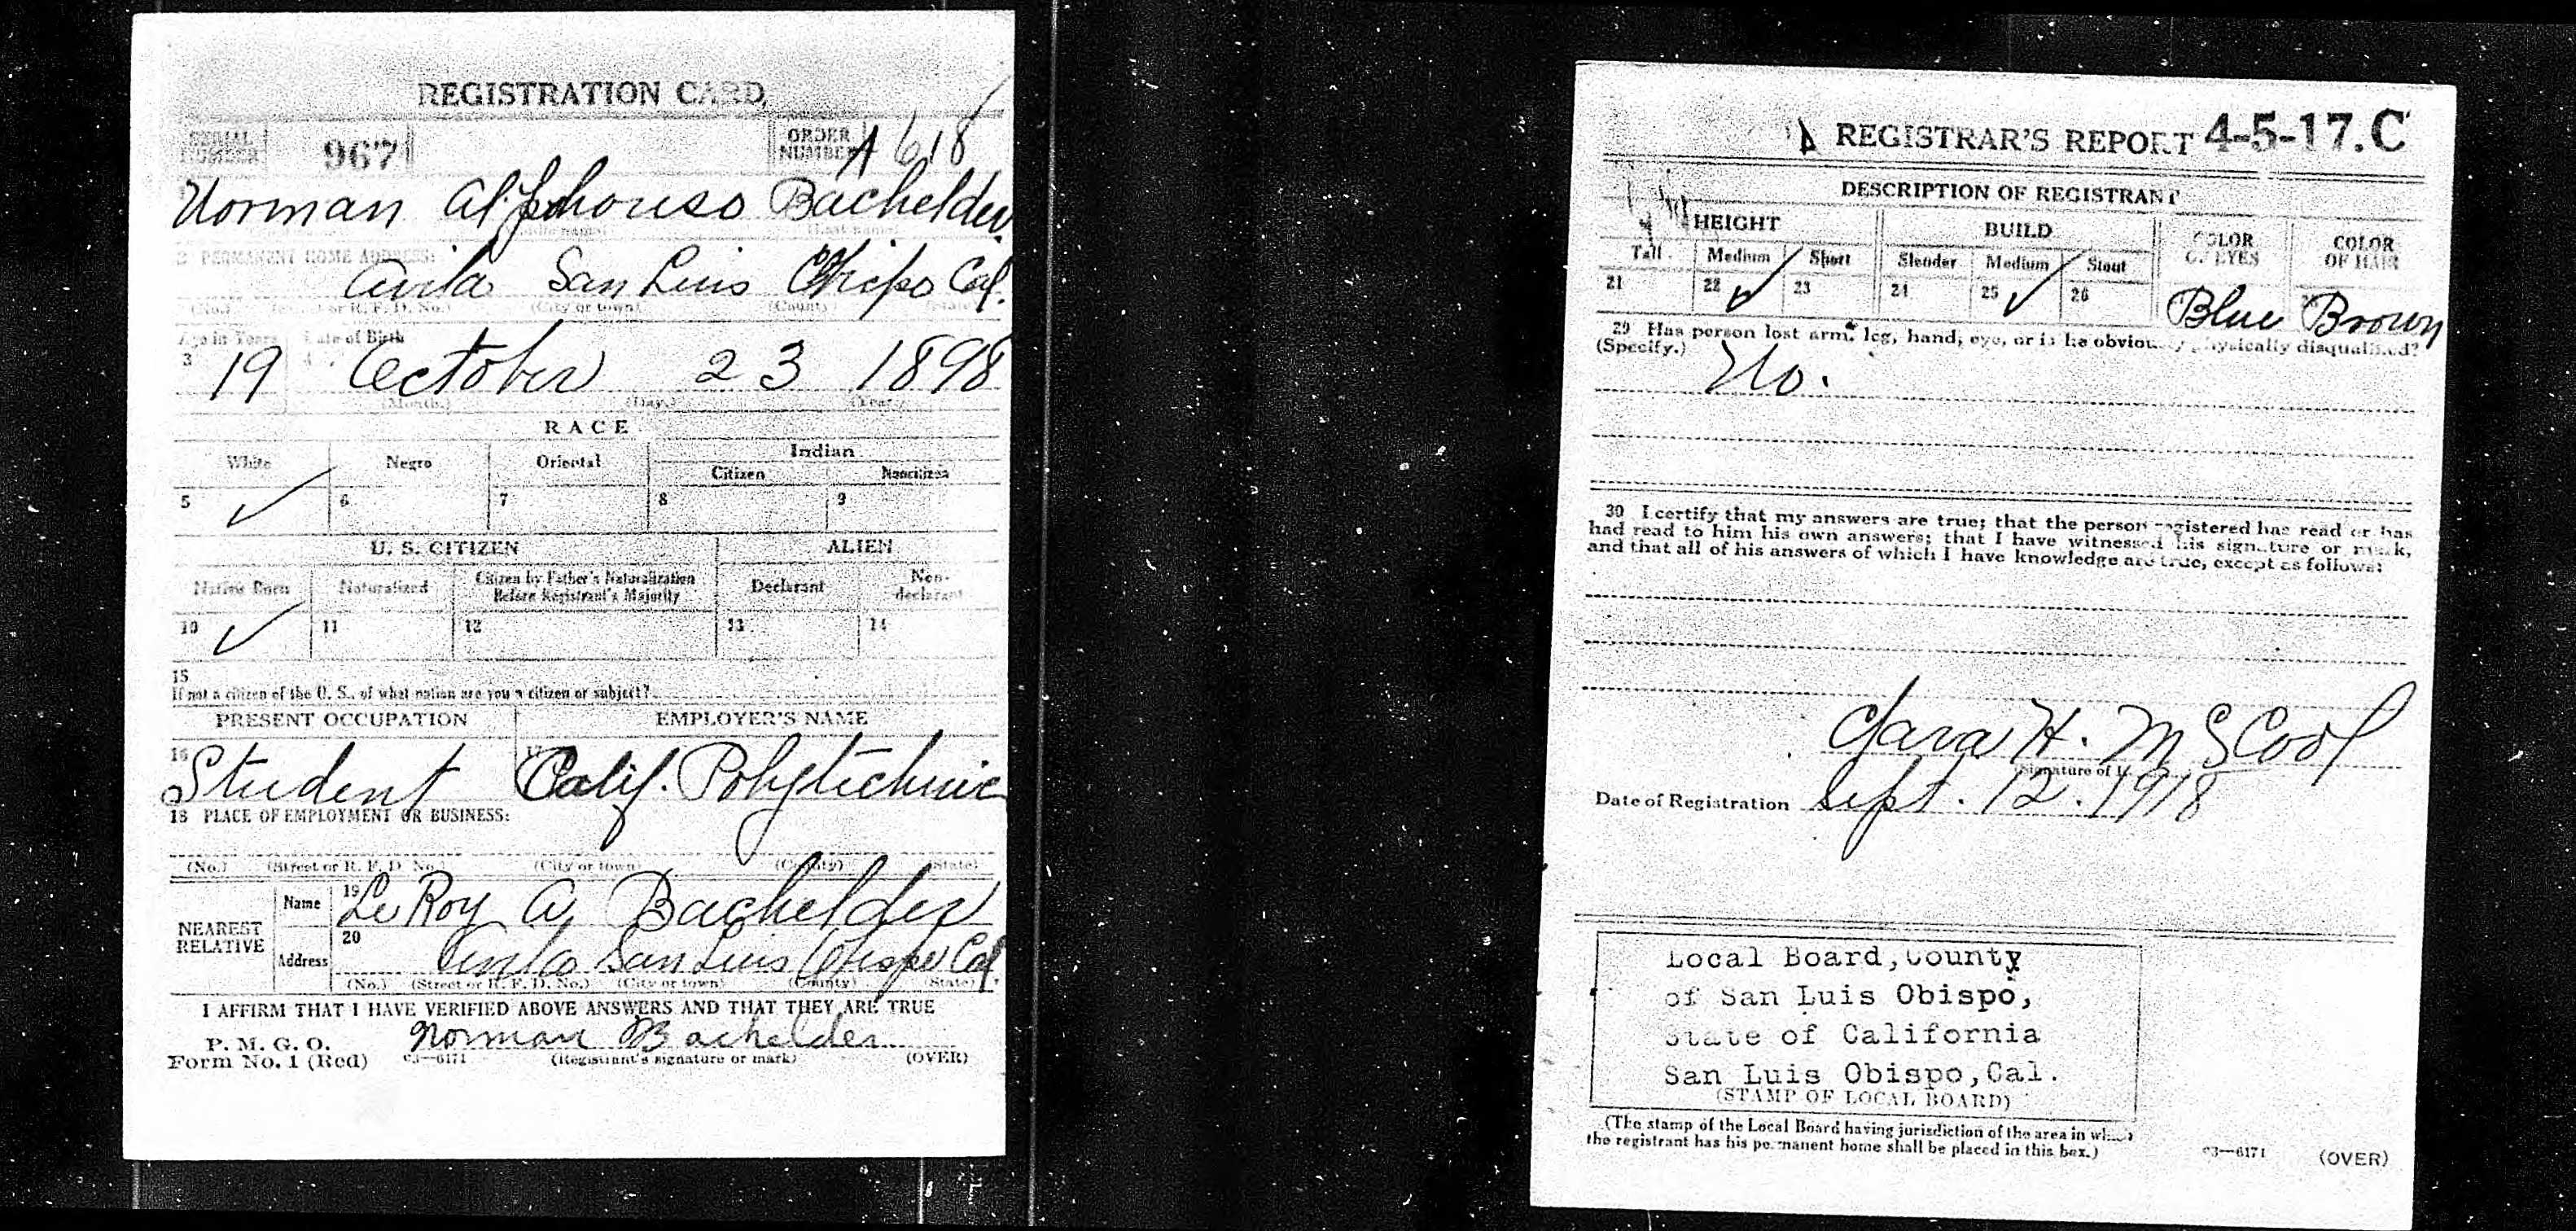 REGISTRATION CARD
SERIAL NUMBER 967 ORDER NUMBER A 618
Norman Alphonso Bachelder
(Middle name) (Last name)
2 PERMANENT HOME ADDRESS:
Avila San Luis Obispo Cal.
(No.) (Street or R. F. D. No.) (City or town) (County) (State)
Age in Years Date of Birth
3 19 4 October 23 1898
(Month.) (Day.) (Year.)
RACE
White Negro Oriental Indian
Citizen Noncitizen
5 ✓ 6 7 8 9
U. S. CITIZEN ALIEN
Native Born Naturalized Citizen by Father's Naturalization Before Registrant's Majority Declarant Non-declarant
10 ✓ 11 12 13 14
15
If not a citizen of the U. S., of what nation are you a citizen or subject?
PRESENT OCCUPATION EMPLOYER'S NAME
16 Student 17 Calif. Polytechnic
18 PLACE OF EMPLOYMENT OR BUSINESS:
(No.) (Street or R. F. D. No.) (City or town) (County) (State)
NEAREST RELATIVE Name 19 Le Roy A. Bachelder
Address 20 Avila San Luis Obispo Cal.
(No.) (Street or R. F. D. No.) (City or town) (County) (State)
I AFFIRM THAT I HAVE VERIFIED ABOVE ANSWERS AND THAT THEY ARE TRUE
P. M. G. O.
Form No. 1 (Red) 03—6171 Norman Bachelder
(Registrant's signature or mark) (OVER)
REGISTRAR'S REPORT 4-5-17.C
DESCRIPTION OF REGISTRANT
HEIGHT BUILD COLOR OF EYES COLOR OF HAIR
Tall Medium Short Slender Medium Stout
21 22 ✓ 23 24 25 ✓ 26 Blue Brown
29 Has person lost arm, leg, hand, eye, or is he obviously physically disqualified?
(Specify.) No.
30 I certify that my answers are true; that the person registered has read or has
had read to him his own answers; that I have witnessed his signature or mark,
and that all of his answers of which I have knowledge are true, except as follows:
Clara H. McCool
(Signature of
Date of Registration Sept. 12. 1918
Local Board, County
of San Luis Obispo,
State of California
San Luis Obispo, Cal.
(STAMP OF LOCAL BOARD)
(The stamp of the Local Board having jurisdiction of the area in which
the registrant has his permanent home shall be placed in this box.)
03—6171 (OVER)